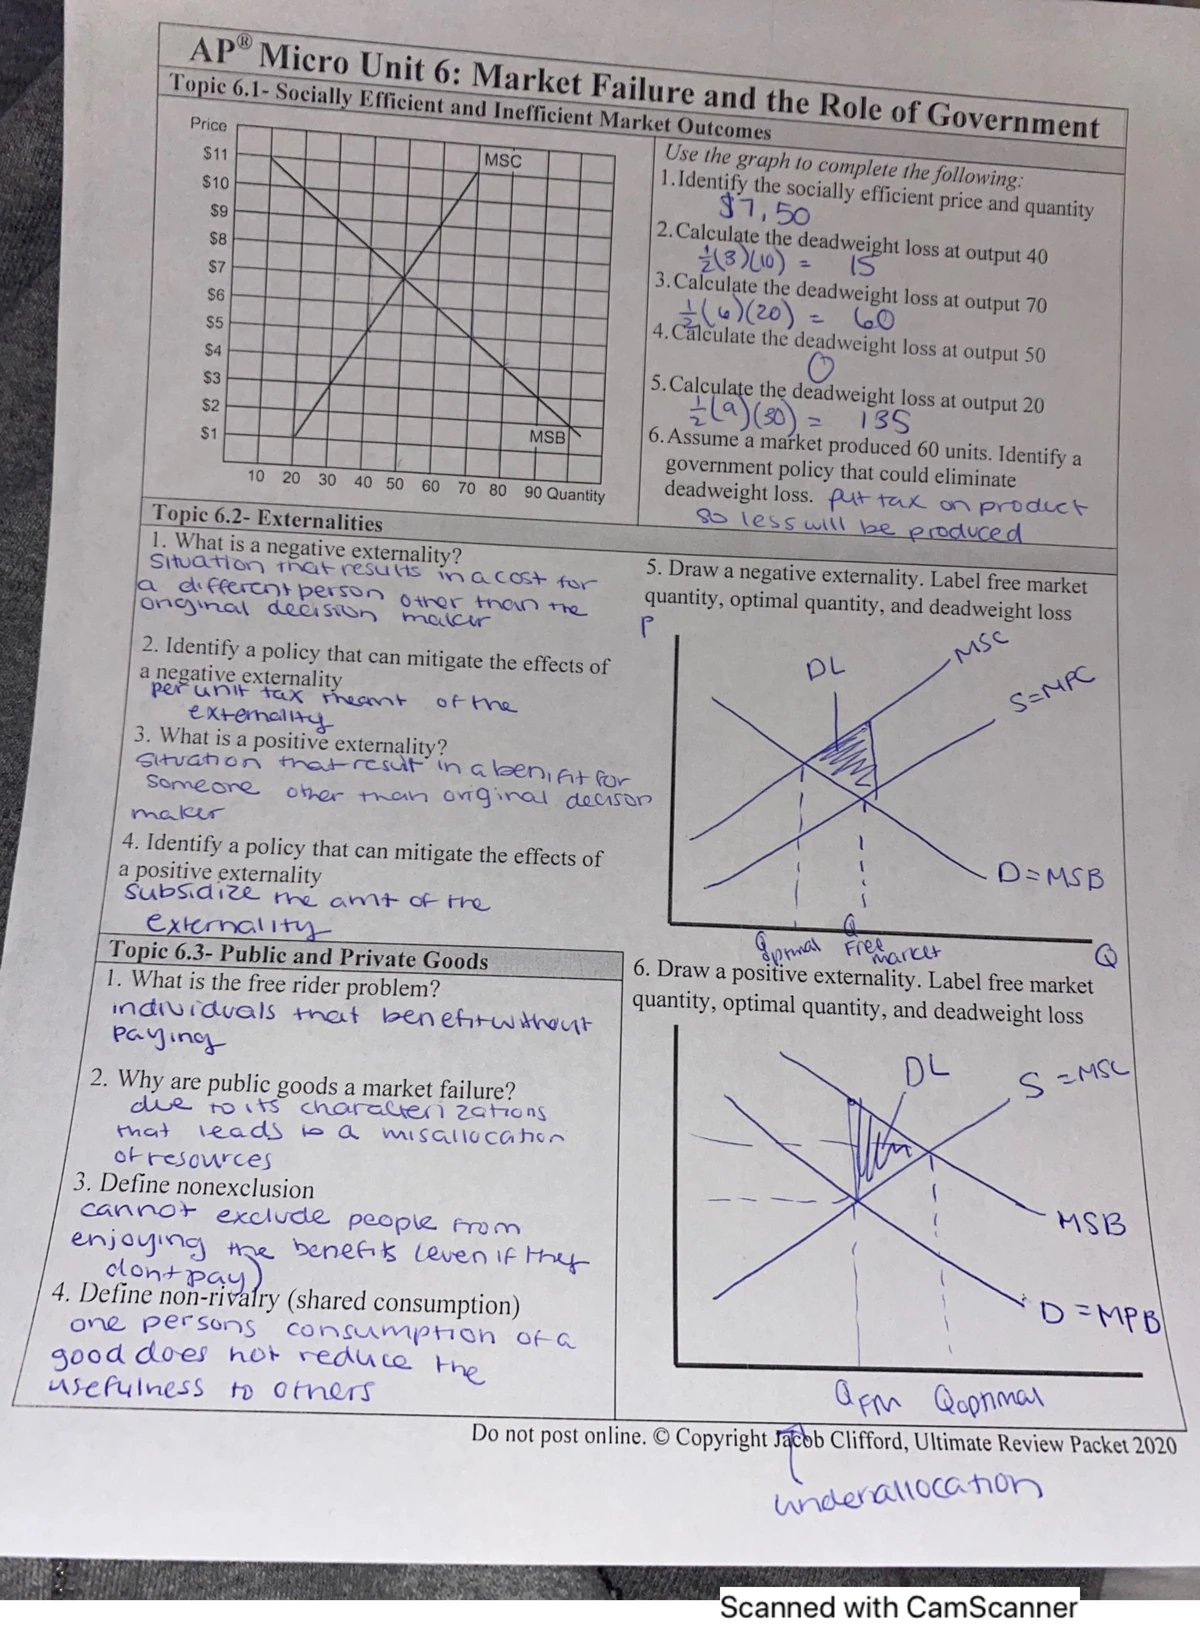 AP® Micro Unit 6: Market Failure and the Role of Government
Topic 6.1- Socially Efficient and Inefficient Market Outcomes
Price
$11
$10
$9
$8
$7
$6
$5
$4
$3
$2
$1
MSC
MSB
10 20 30 40 50 60 70 80 90 Quantity
Use the graph to complete the following:
1. Identify the socially efficient price and quantity
$7, 50
2. Calculate the deadweight loss at output 40
½(3)(10) = 15
3. Calculate the deadweight loss at output 70
½(6)(20) = 60
4. Calculate the deadweight loss at output 50
0
5. Calculate the deadweight loss at output 20
½(9)(30) = 135
6. Assume a market produced 60 units. Identify a
government policy that could eliminate
deadweight loss. put tax on product
so less will be produced
Topic 6.2- Externalities
1. What is a negative externality?
situation that results in a cost for
a different person other than the
original decision maker
2. Identify a policy that can mitigate the effects of
a negative externality
per unit tax the amt of the
externality
3. What is a positive externality?
situation that result in a benifit for
someone other than original decison
maker
4. Identify a policy that can mitigate the effects of
a positive externality
subsidize the amt of the
externality
5. Draw a negative externality. Label free market
quantity, optimal quantity, and deadweight loss
P
DL
MSC
S=MPC
D=MSB
Q optimal
Q Free market
Q
Topic 6.3- Public and Private Goods
1. What is the free rider problem?
individuals that benefit without
paying
2. Why are public goods a market failure?
due to its characterizations
that leads to a misallocation
of resources
3. Define nonexclusion
cannot exclude people from
enjoying the benefits (even if they
dont pay)
4. Define non-rivalry (shared consumption)
one persons consumption of a
good does not reduce the
usefulness to others
6. Draw a positive externality. Label free market
quantity, optimal quantity, and deadweight loss
DL
S=MSC
MSB
D=MPB
QFM Qoptimal
Do not post online. © Copyright Jacob Clifford, Ultimate Review Packet 2020
underallocation
Scanned with CamScanner